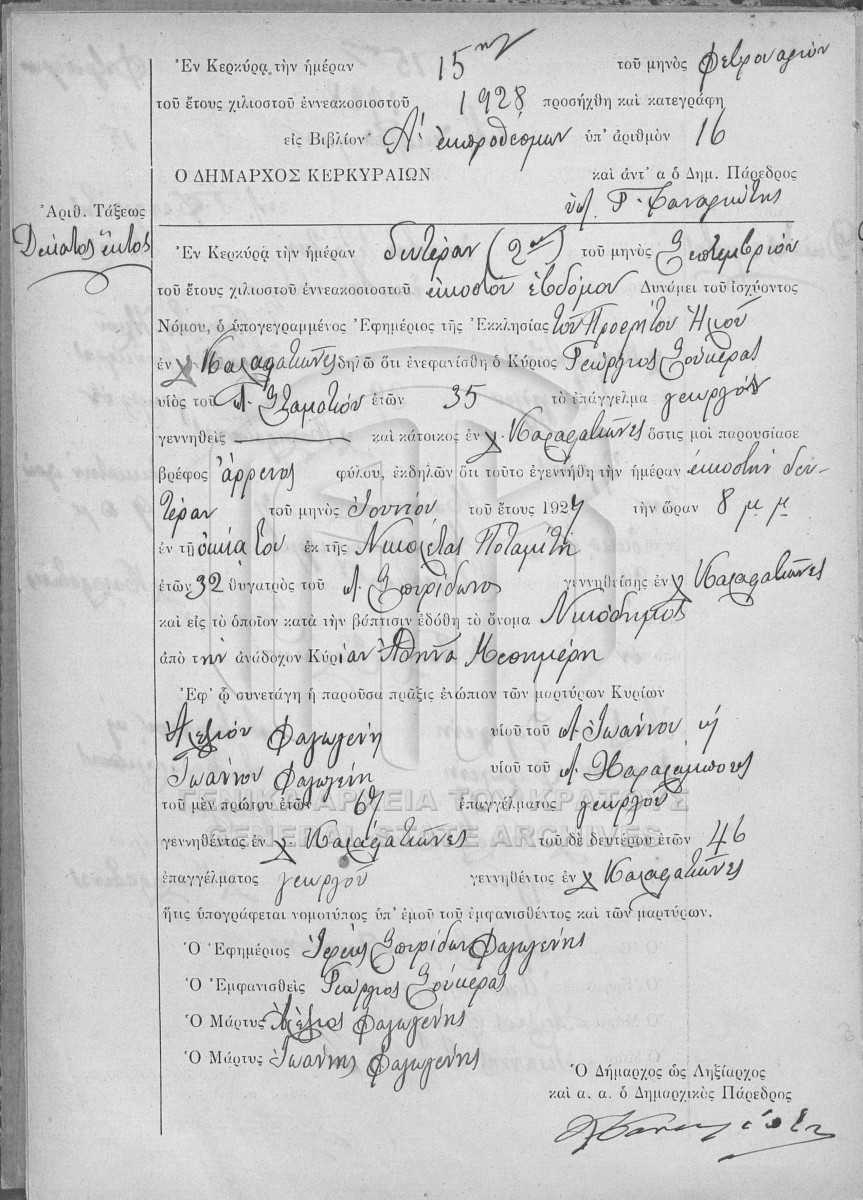 Ἐν Κερκύρᾳ τὴν ἡμέραν 15ην τοῦ μηνὸς Φεβρουαρίου
τοῦ ἔτους χιλιοστοῦ ἐννεακοσιοστοῦ 1928 προσήχθη καὶ κατεγράφη
εἰς Βιβλίον Α' ἐκπροθέσμων ὑπ' ἀριθμὸν 16
Ο ΔΗΜΑΡΧΟΣ ΚΕΡΚΥΡΑΙΩΝ καὶ ἀντ' α ὁ Δημ. Πάρεδρος
Γ. Φαναριώτης
Ἀριθ. Τάξεως
Δέκατος ἕκτος
Ἐν Κερκύρᾳ τὴν ἡμέραν δευτέραν (2αν) τοῦ μηνὸς Σεπτεμβρίου
τοῦ ἔτους χιλιοστοῦ ἐννεακοσιοστοῦ εἰκοστοῦ ἑβδόμου Δυνάμει τοῦ ἰσχύοντος
Νόμου, ὁ ὑπογεγραμμένος Ἐφημέριος τῆς Ἐκκλησίας τοῦ Προφήτου Ἠλιοῦ
ἐν χ Καλαφατιῶνες δηλῶ ὅτι ἐνεφανίσθη ὁ Κύριος Γεώργιος Σούκερας
υἱὸς τοῦ π. Σταματίου ἐτῶν 35 τὸ ἐπάγγελμα γεωργὸν
γεννηθεὶς καὶ κάτοικος ἐν χ. Καλαφατιῶνες ὅστις μοὶ παρουσίασε
βρέφος ἄρρενος φύλου, ἐκδηλῶν ὅτι τοῦτο ἐγεννήθη τὴν ἡμέραν εἰκοστὴν δευ-
τέραν τοῦ μηνὸς Ἰουνίου τοῦ ἔτους 1927 τὴν ὥραν 8 μ μ
ἐν τῇ οἰκίᾳ του ἐκ τῆς Νικολέτας Ποταμίτη
ἐτῶν 32 θυγατρὸς τοῦ π. Σπιρίδωνος γεννηθείσης ἐν χ Καλαφατιῶνες
καὶ εἰς τὸ ὁποῖον κατὰ τὴν βάπτισιν ἐδόθη τὸ ὄνομα Νικόδημος
ἀπὸ την ἀνάδοχον Κυρίαν Ἀθηνᾶ Μεσημέρη
Ἐφ' ᾧ συνετάγη ἡ παροῦσα πρᾶξις ἐνώπιον τῶν μαρτύρων Κυρίων
Ἀλεξίου Φαγωγένη υἱοῦ τοῦ π. Ἰωάννου ἠ
Ἰωάννου Φαγωγένη υἱοῦ τοῦ π. Χαραλάμπους
τοῦ μὲν πρώτου ἐτῶν 67 ἐπαγγέλματος γεωργοῦ
γεννηθέντος ἐν χ Καλαφατιῶνες τοῦ δὲ δευτέρου ἐτῶν 46
ἐπαγγέλματος γεωργοῦ γεννηθέντος ἐν χ Καλαφατιῶνες
ἥτις ὑπογράφεται νομοτύπως ὑπ' ἐμοῦ τοῦ ἐμφανισθέντος καὶ τῶν μαρτύρων.
Ὁ Ἐφημέριος Ἱερεὺς Σπιρίδων Φαγωγένης
Ὁ Ἐμφανισθεὶς Γεώργιος Σούκερας
Ὁ Μάρτυς Ἀλέξιος Φαγωγένης
Ὁ Μάρτυς Ἰωάννης Φαγωγένης
Ὁ Δήμαρχος ὡς Ληξίαρχος
καὶ α. α. ὁ Δημαρχικὸς Πάρεδρος
ΓΕΝΙΚΑ ΑΡΧΕΙΑ ΤΟΥ ΚΡΑΤΟΥΣ
GENERAL STATE ARCHIVES